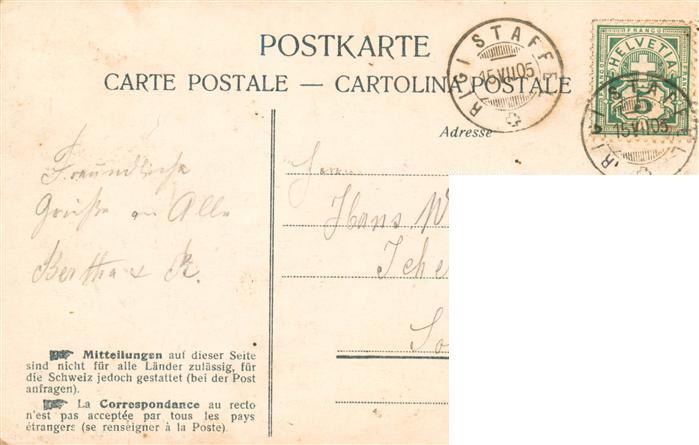 POSTKARTE
CARTE POSTALE — CARTOLINA POSTALE
Adresse
RIGI STAFFEL
15.VII.05
FRANCO
HELVETIA
5
RIGI STAFFEL
15.VII.05
Freundliche
Grüße an Alle
Bertha & R.
Hans W
Sche
So
Mitteilungen auf dieser Seite
sind nicht für alle Länder zulässig, für
die Schweiz jedoch gestattet (bei der Post
anfragen).
La Correspondance au recto
n'est pas acceptée par tous les pays
étrangers (se renseigner à la Poste).